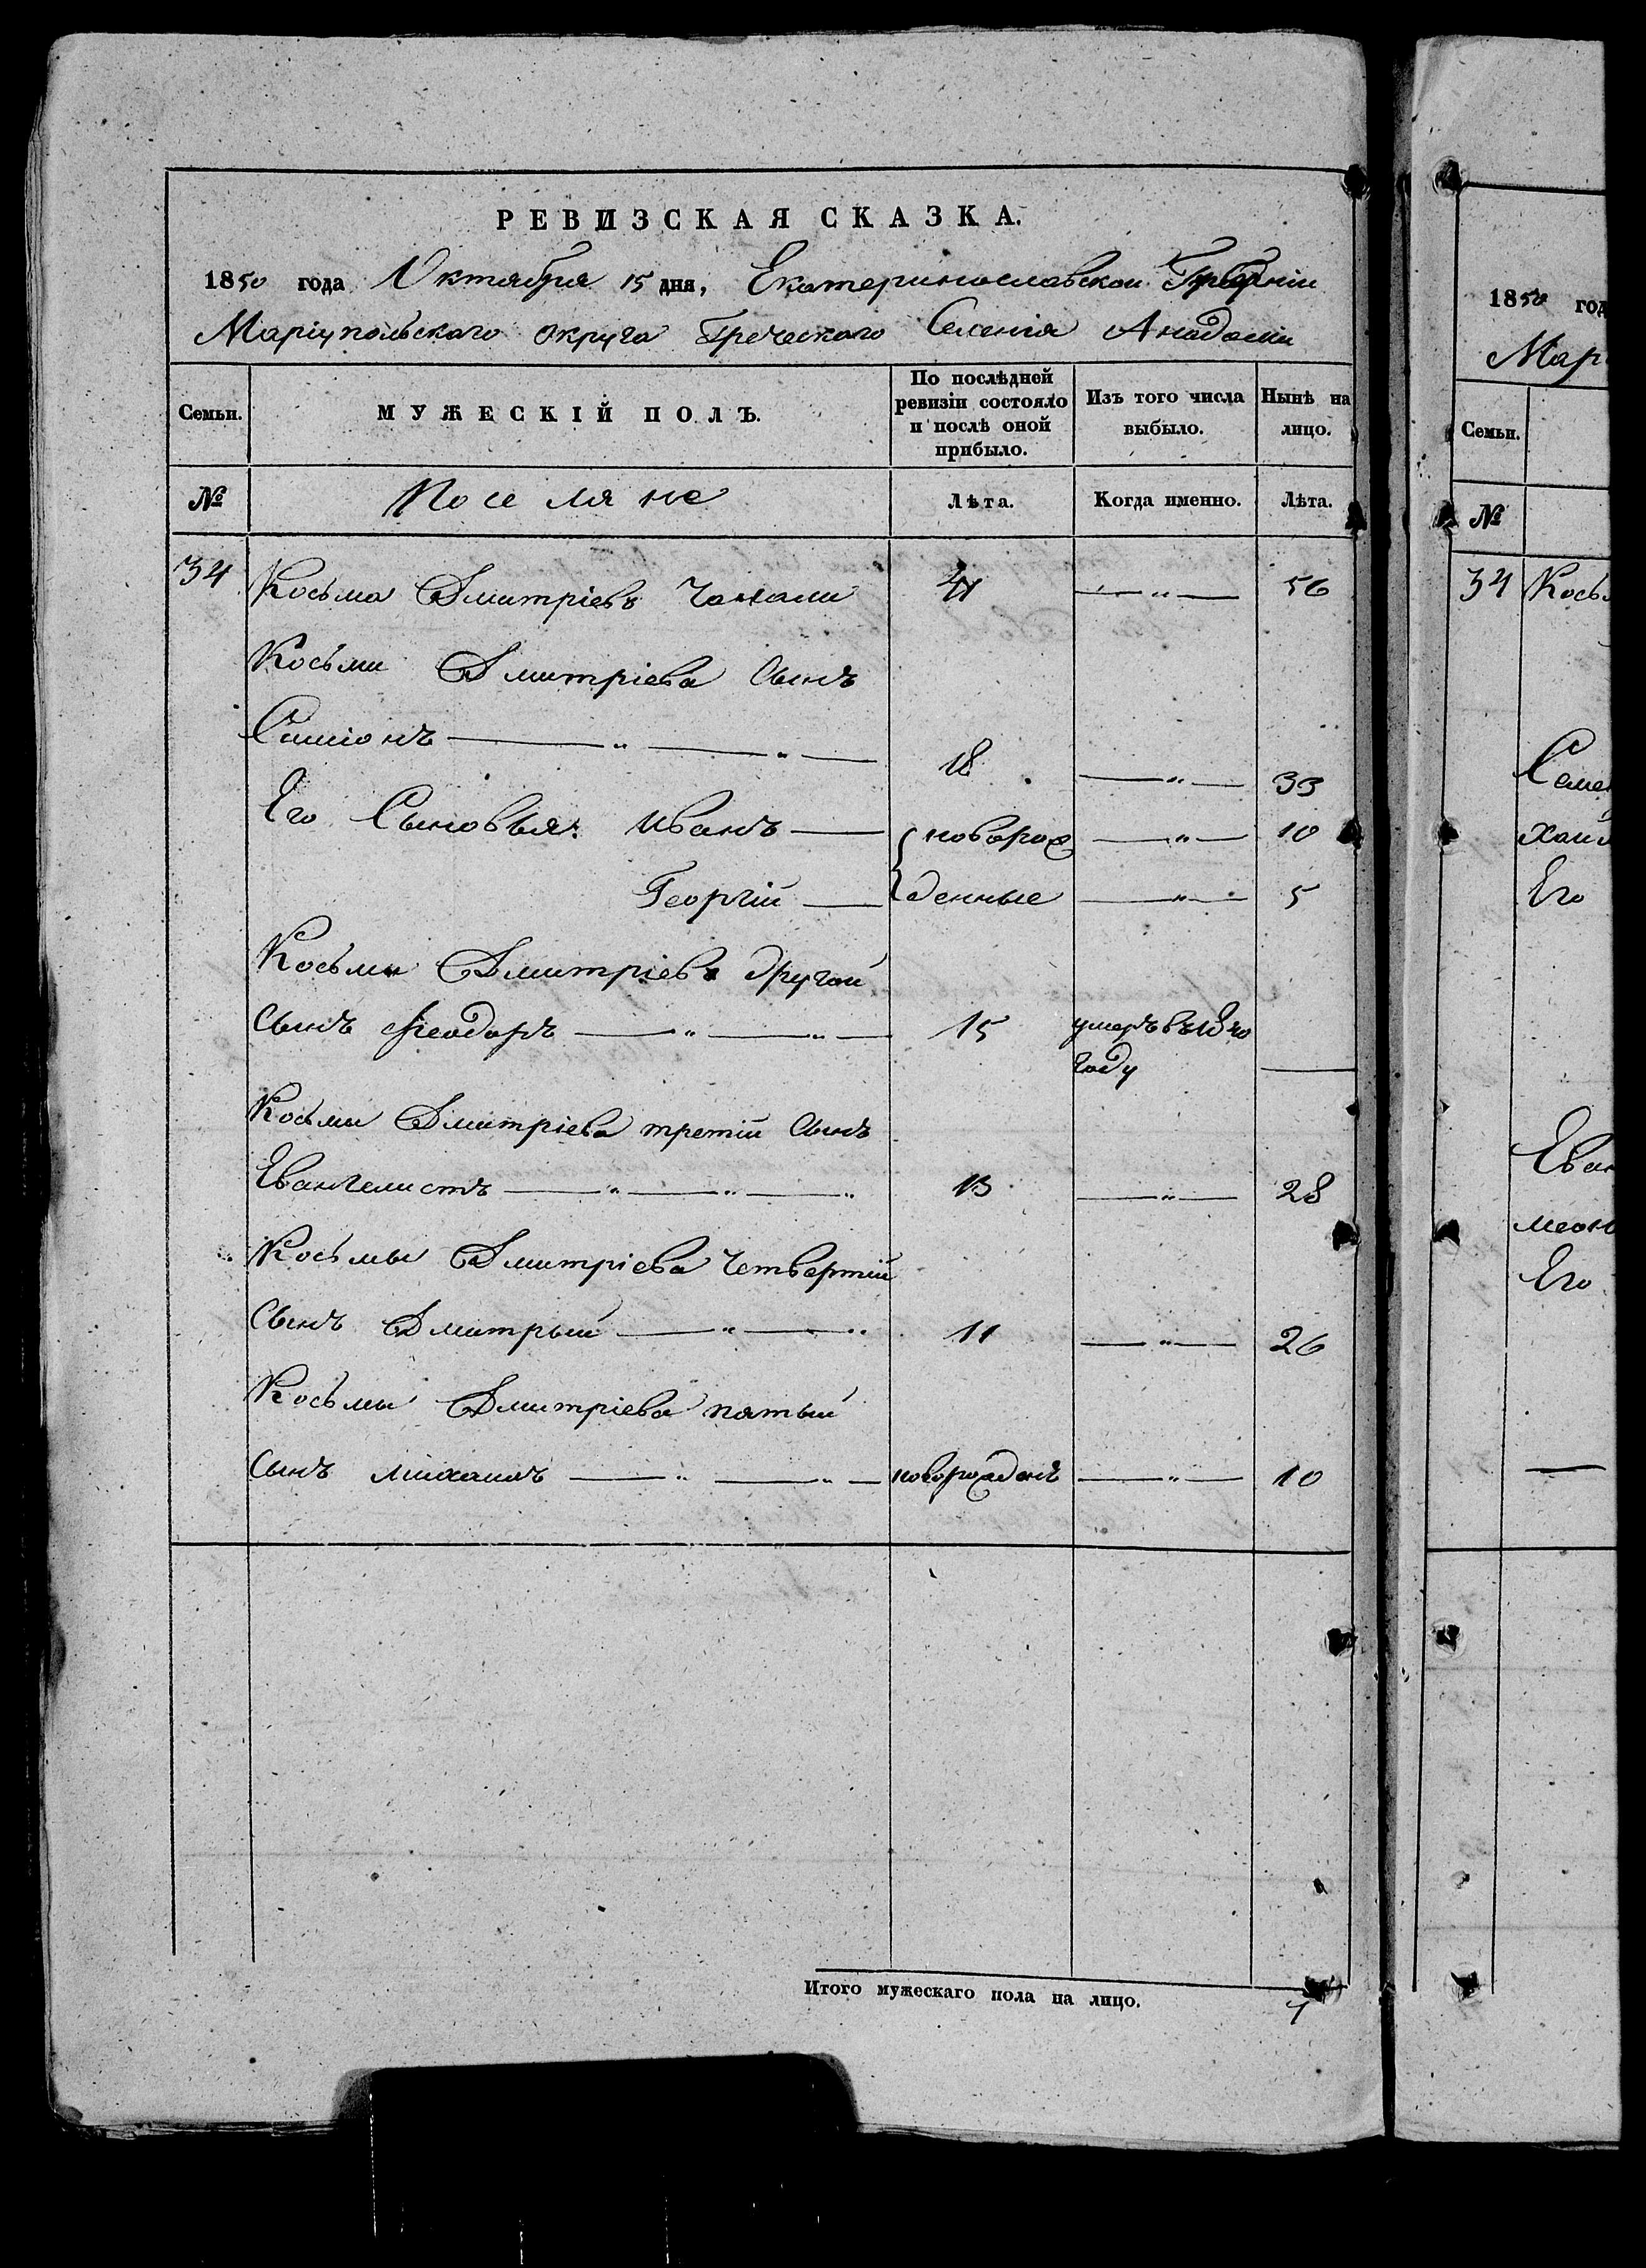 РЕВИЗСКАЯ СКАЗКА.
1850 года Октября 15 дня, Екатеринославской Губерніи
Маріупольскаго округа Греческаго Селенія Анадоли
Семьи.
МУЖЕСКІЙ ПОЛЪ.
По послѣдней ревизіи состояло и послѣ оной прибыло.
Изъ того числа выбыло.
Нынѣ на лицо.
№
Поселяне
Лѣта.
Когда именно.
Лѣта.
34 Косьма Дмитріевъ 41 — " — 56
Косьми Дмитріева Сынъ
Симіонъ — " — " — 18 — " — 33
Его Сыновья: Иванъ — новорож — " — 10
Георгій — денные — " — 5
Косьми Дмитріева другой
Сынъ Феодоръ — " — " — 15 умеръ въ 1840
году —
Косьми Дмитріева третій Сынъ
Евангелистъ — " — " — " 13 — " — 28
Косьмы Дмитріева Четвертій
Сынъ Дмитрый — " — " 11 — " — 26
Косьмы Дмитріева пятый
Сынъ Михаилъ — " — " — новорожденъ — " — 10
Итого мужескаго пола на лицо. 7
1850 год
Мар
Семьи.
№
34 Кось
Семе
Его
Еван
Его